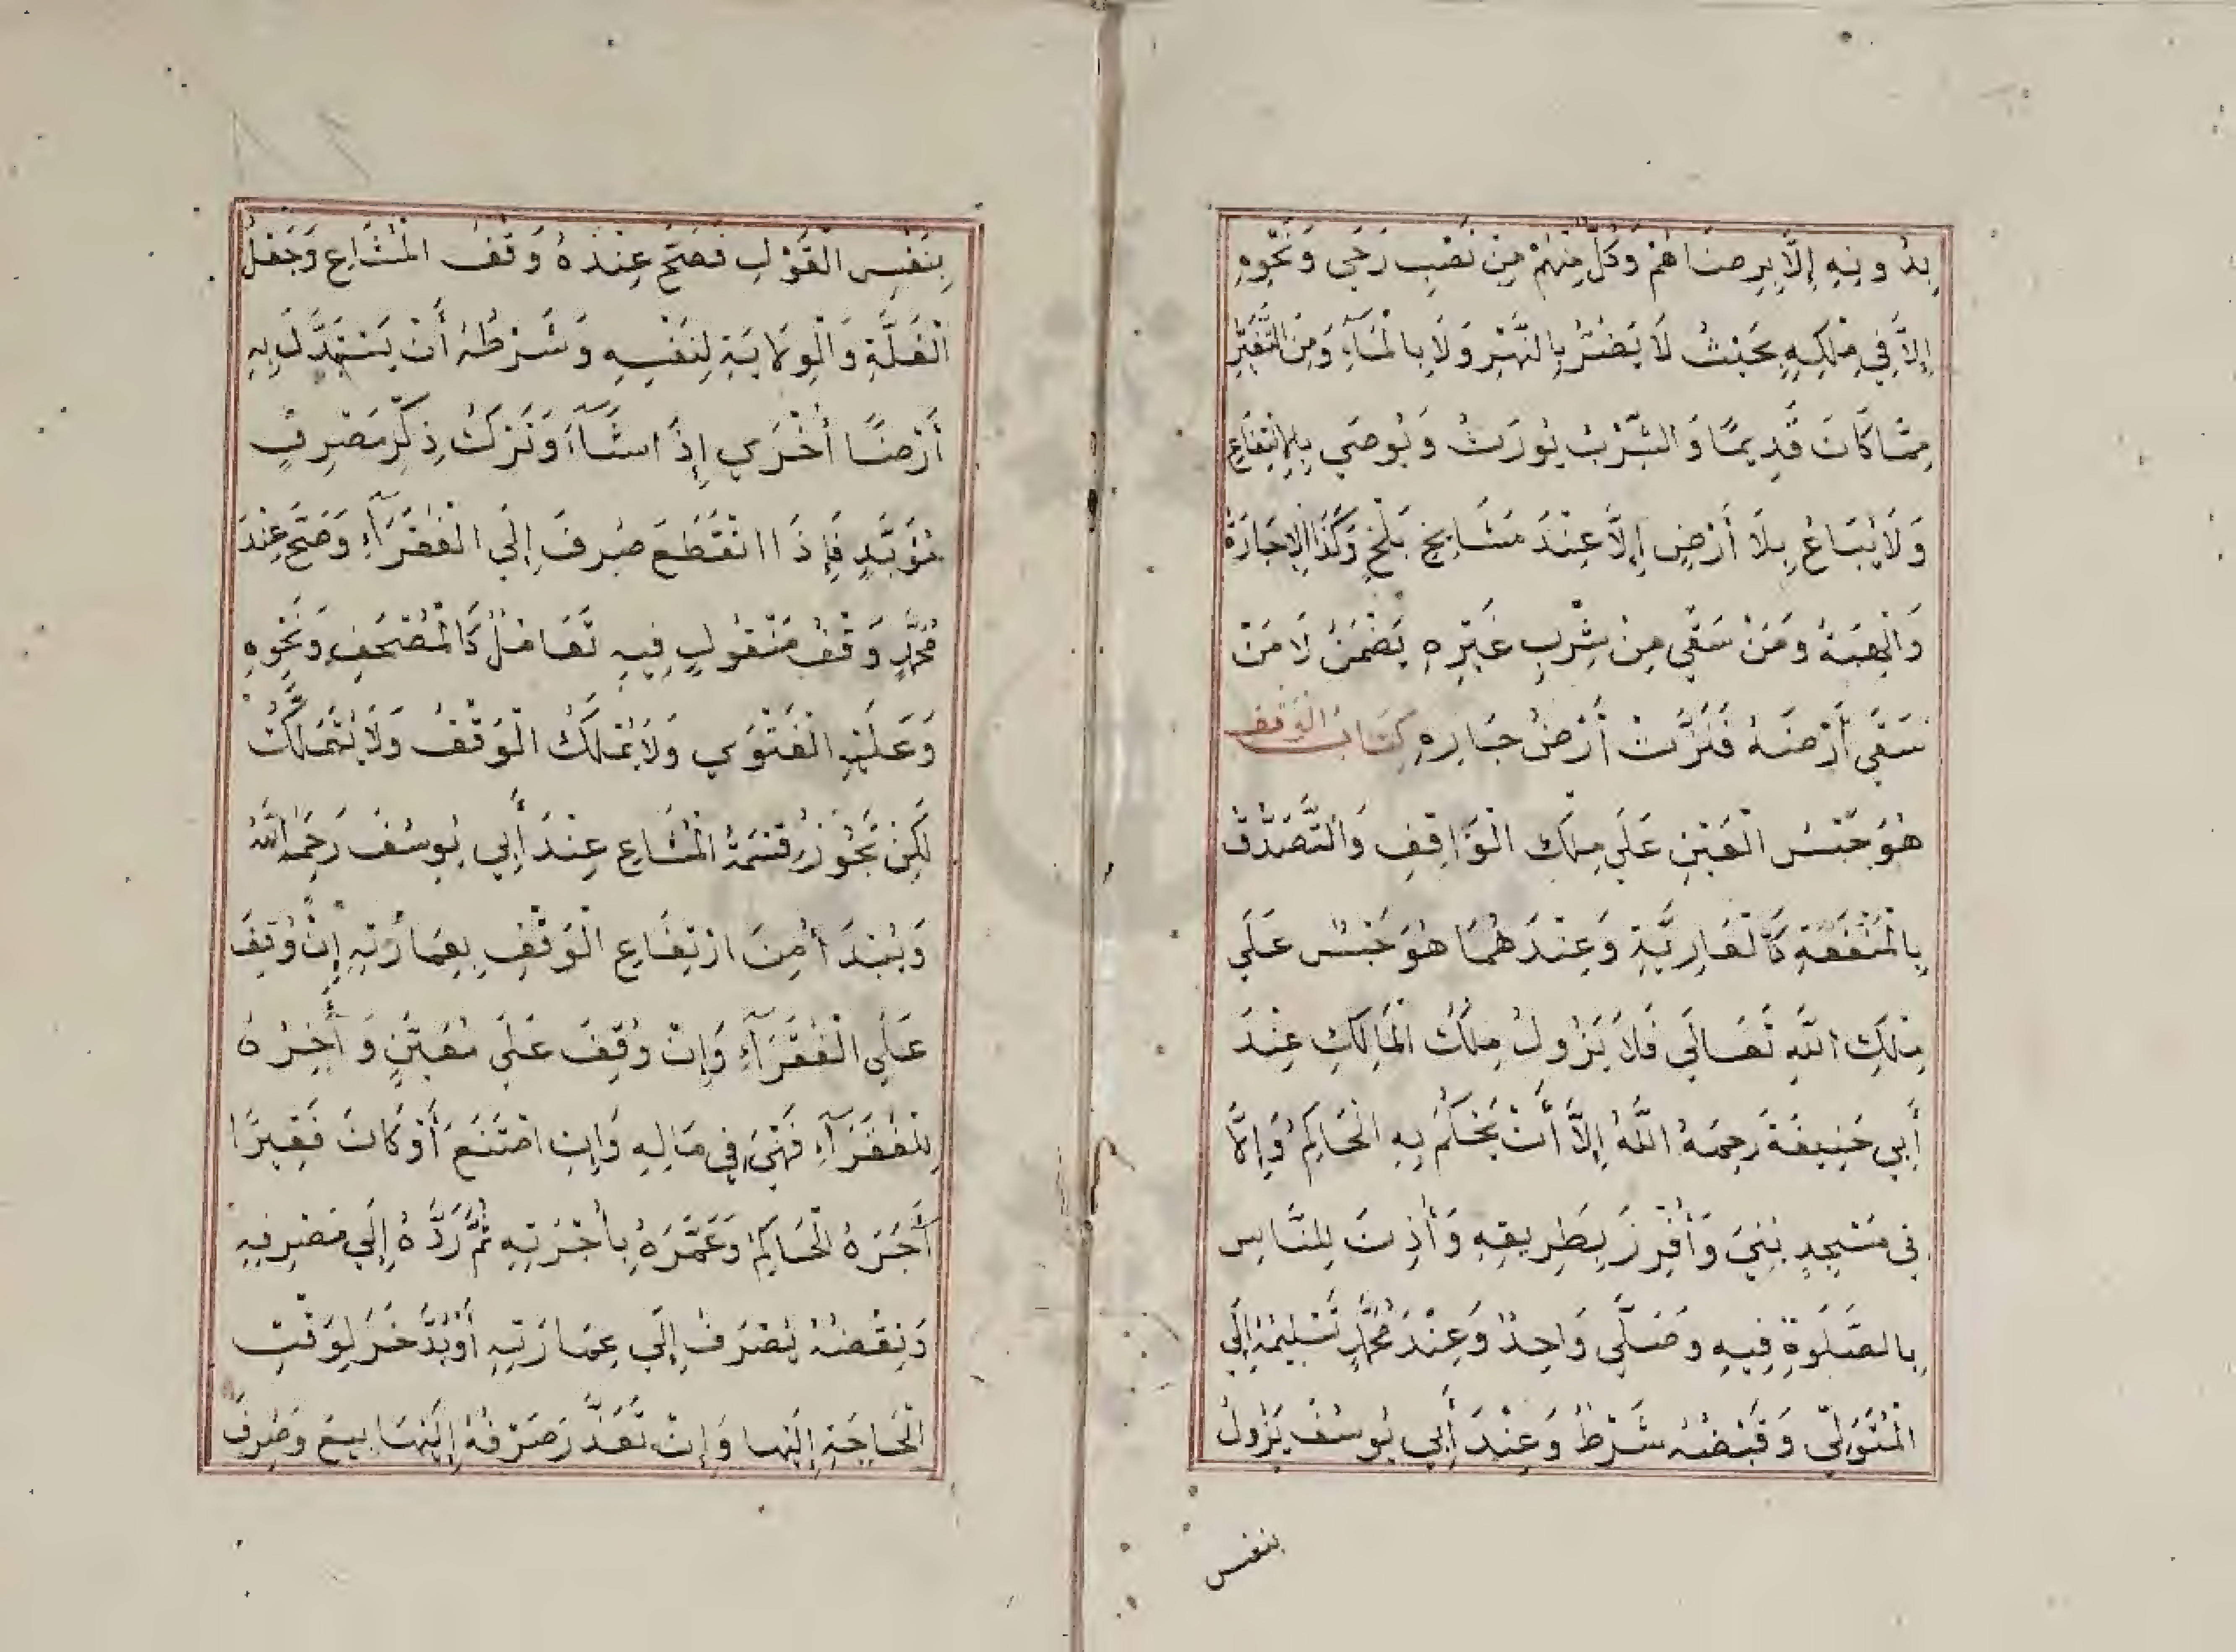 بِدُونِهِ إِلَّا بِرِضَاهُمْ وَكُلٌّ مِنْهُمْ مِنْ نَصْبِ رَحَي وَنَحْوِهِ
إِلَّا فِي مِلْكِهِ بِحَيْثُ لَا يَضُرُّ بِالنَّهْرِ وَلَا بِالْمَاءِ وَمِنَ التَّغْيِيرِ
مِمَّا كَانَ قَدِيمًا وَالشِّرْبُ يُورَثُ وَيُوصَي بِالِانْتِفَاعِ
وَلَا يُبَاعُ بِلَا أَرْضٍ إِلَّا عِنْدَ مَشَايِخِ بَلْخٍ وَكَذَا الْإِجَارَةُ
وَالْهِبَةُ وَمَنْ سَقَي مِنْ شِرْبِ غَيْرِهِ يَضْمَنُ لَا مَنْ
سَقَي أَرْضَهُ فَنَزَّتْ أَرْضُ جَارِهِ كِتَابُ الْوَقْفِ
هُوَ حَبْسُ الْعَيْنِ عَلَي مِلْكِ الْوَاقِفِ وَالتَّصَدُّقُ
بِالْمَنْفَعَةِ كَالْعَارِيَّةِ وَعِنْدَهُمَا هُوَ حَبْسٌ عَلَي
مِلْكِ اللَّهِ تَعَالَي فَلَا يَزُولُ مِلْكُ الْمَالِكِ عِنْدَ
أَبِي حَنِيفَةَ رَحِمَهُ اللَّهُ إِلَّا أَنْ يَحْكُمَ بِهِ الْحَاكِمُ وَإِلَّا
فِي مَسْجِدٍ بُنِيَ وَأُفْرِزَ بِطَرِيقِهِ وَأُذِنَ لِلنَّاسِ
بِالصَّلَوةِ فِيهِ وَصَلَّي وَاحِدٌ وَعِنْدَ مُحَمَّدٍ تَسْلِيمُهُ إِلَي
الْمُتَوَلِّي وَقَبْضُهُ شَرْطٌ وَعِنْدَ أَبِي يُوسُفَ يَزُولُ
بنفس
بِنَفْسِ الْقَوْلِ فَصَحَّ عِنْدَهُ وَقْفُ الْمُشَاعِ وَجَعْلُ
الْغَلَّةِ وَالْوِلَايَةِ لِنَفْسِهِ وَشَرْطُهُ أَنْ يَسْتَبْدِلَ بِهِ
أَرْضًا أُخْرَي إِذَا شَاءَ وَتَرْكُ ذِكْرِ مَصْرِفٍ
مُؤَبَّدٍ فَإِذَا انْقَطَعَ صُرِفَ إِلَي الْفُقَرَآءِ وَصَحَّ عِنْدَ
مُحَمَّدٍ وَقْفُ مَنْقُولٍ فِيهِ تَعَامُلٌ كَالْمُصْحَفِ وَنَحْوِهِ
وَعَلَيْهِ الْفَتْوَي وَلَا يُمْلَكُ الْوَقْفُ وَلَا يُتَمَلَّكُ
لَكِنْ تَجُوزُ قِسْمَةُ الْمُشَاعِ عِنْدَ أَبِي يُوسُفَ رَحِمَهُ اللَّهُ
وَيُبْدَأُ مِنَ ارْتِفَاعِ الْوَقْفِ بِعِمَارَتِهِ إِنْ وُقِفَ
عَلَي الْفُقَرَآءِ وَإِنْ وُقِفَ عَلَي مُعَيَّنٍ وَأٰخِرُهُ
لِلْفُقَرَآءِ فَهْيَ فِي مَالِهِ وَإِنِ امْتَنَعَ أَوْ كَانَ فَقِيرًا
أٰجَرَهُ الْحَاكِمُ وَعَمَّرَهُ بِأُجْرَتِهِ ثُمَّ رَدَّهُ إِلَي مَصْرِفِهِ
وَنِقْضُهُ يُصْرَفُ إِلَي عِمَارَتِهِ أَوْ يُدَّخَرُ لِوَقْتِ
الْحَاجَةِ إِلَيْهَا وَإِنْ تَعَذَّرَ صَرْفُهُ إِلَيْهَا بِيعَ وَصُرِفَ